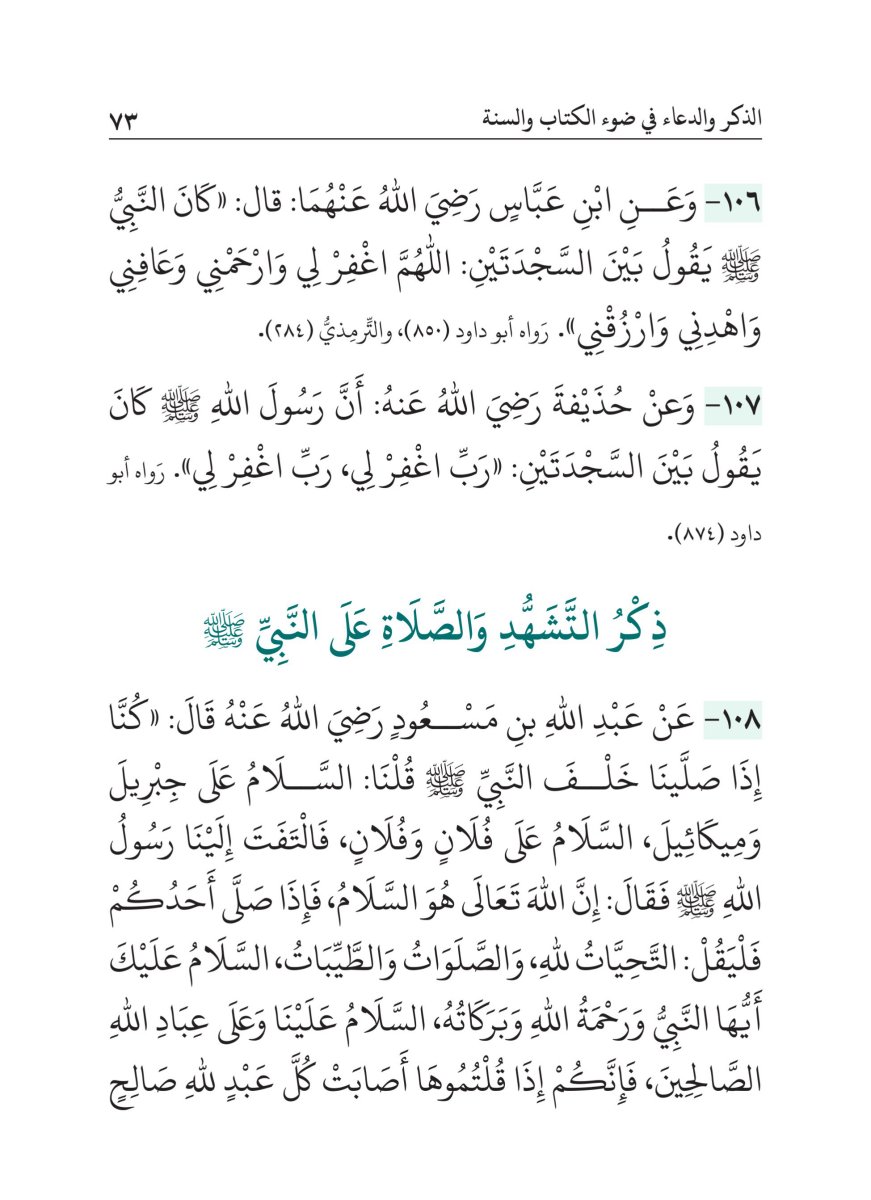 الذكر والدعاء في ضوء الكتاب والسنة ٧٣
١٠٦- وَعَـــنِ ابْنِ عَبَّاسٍ رَضِيَ اللهُ عَنْهُمَا: قال: «كَانَ النَّبِيُّ
ﷺ يَقُولُ بَيْنَ السَّجْدَتَيْنِ: اللَّهُمَّ اغْفِرْ لِي وَارْحَمْنِي وَعَافِنِي
وَاهْدِنِي وَارْزُقْنِي». رَواه أبو داود (٨٥٠)، والتِّرمِذيُّ (٢٨٤).
١٠٧- وَعنْ حُذَيْفةَ رَضِيَ اللهُ عَنهُ: أَنَّ رَسُولَ اللهِ ﷺ كَانَ
يَقُولُ بَيْنَ السَّجْدَتَيْنِ: «رَبِّ اغْفِرْ لِي، رَبِّ اغْفِرْ لِي». رَواه أبو
داود (٨٧٤).
ذِكْرُ التَّشَهُّدِ وَالصَّلَاةِ عَلَى النَّبِيِّ ﷺ
١٠٨- عَنْ عَبْدِ اللهِ بنِ مَسْـــعُودٍ رَضِيَ اللهُ عَنْهُ قَالَ: «كُنَّا
إِذَا صَلَّينَا خَلْـــفَ النَّبِيِّ ﷺ قُلْنَا: السَّـــلَامُ عَلَى جِبْرِيلَ
وَمِيكَائِيلَ، السَّلَامُ عَلَى فُلَانٍ وَفُلَانٍ، فَالْتَفَتَ إِلَيْنَا رَسُولُ
اللهِ ﷺ فَقَالَ: إِنَّ اللهَ تَعَالَى هُوَ السَّلَامُ، فَإِذَا صَلَّى أَحَدُكُمْ
فَلْيَقُلْ: التَّحِيَّاتُ للهِ، وَالصَّلَوَاتُ وَالطَّيِّبَاتُ، السَّلَامُ عَلَيْكَ
أَيُّهَا النَّبِيُّ وَرَحْمَةُ اللهِ وَبَرَكَاتُهُ، السَّلَامُ عَلَيْنَا وَعَلَى عِبَادِ اللهِ
الصَّالِحِينَ، فَإِنَّكُمْ إِذَا قُلْتُمُوهَا أَصَابَتْ كُلَّ عَبْدٍ للهِ صَالِحٍ